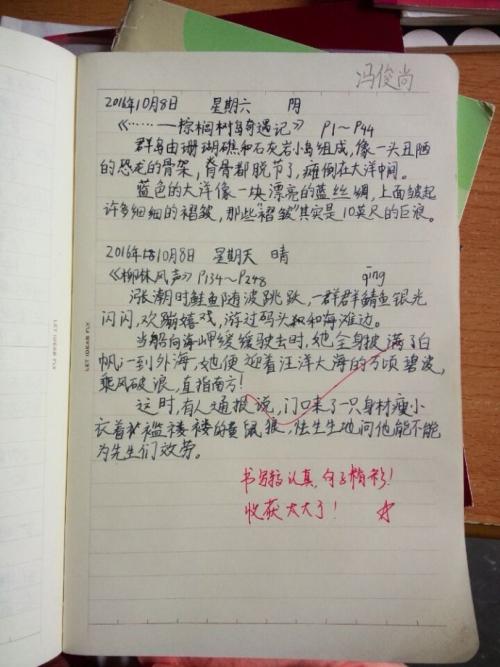 冯俊尚
2016年10月8日 星期六 阴
《……——棕榈树岛奇遇记》 P1～P44
群岛由珊瑚礁和石灰岩小岛组成,像一头丑陋
的恐龙的骨架,脊骨都脱节了,瘫倒在大洋中间。
蓝色的大洋像一块漂亮的蓝丝绸,上面皱起
许多细细的褶皱,那些“褶皱”其实是10英尺的巨浪。
2016年10月8日 星期天 晴
《柳林风声》P134～P248 qīng
涨潮时鲑鱼随波跳跃,一群群鲭鱼银光
闪闪,欢蹦嬉戏,游过码头和海滩边。
当船向海岬缓缓驶去时,她全身披满了白
帆,一到外海,她便迎着汪洋大海的万顷碧波,
乘风破浪,直指南方!
这时,有人通报说,门口来了一只身材瘦小
衣着褴褛的黄鼠狼,怯生生地问他能不能
为先生们效劳。
书写认真,句子精彩!
收获大大了!
LET IDEAS FLY